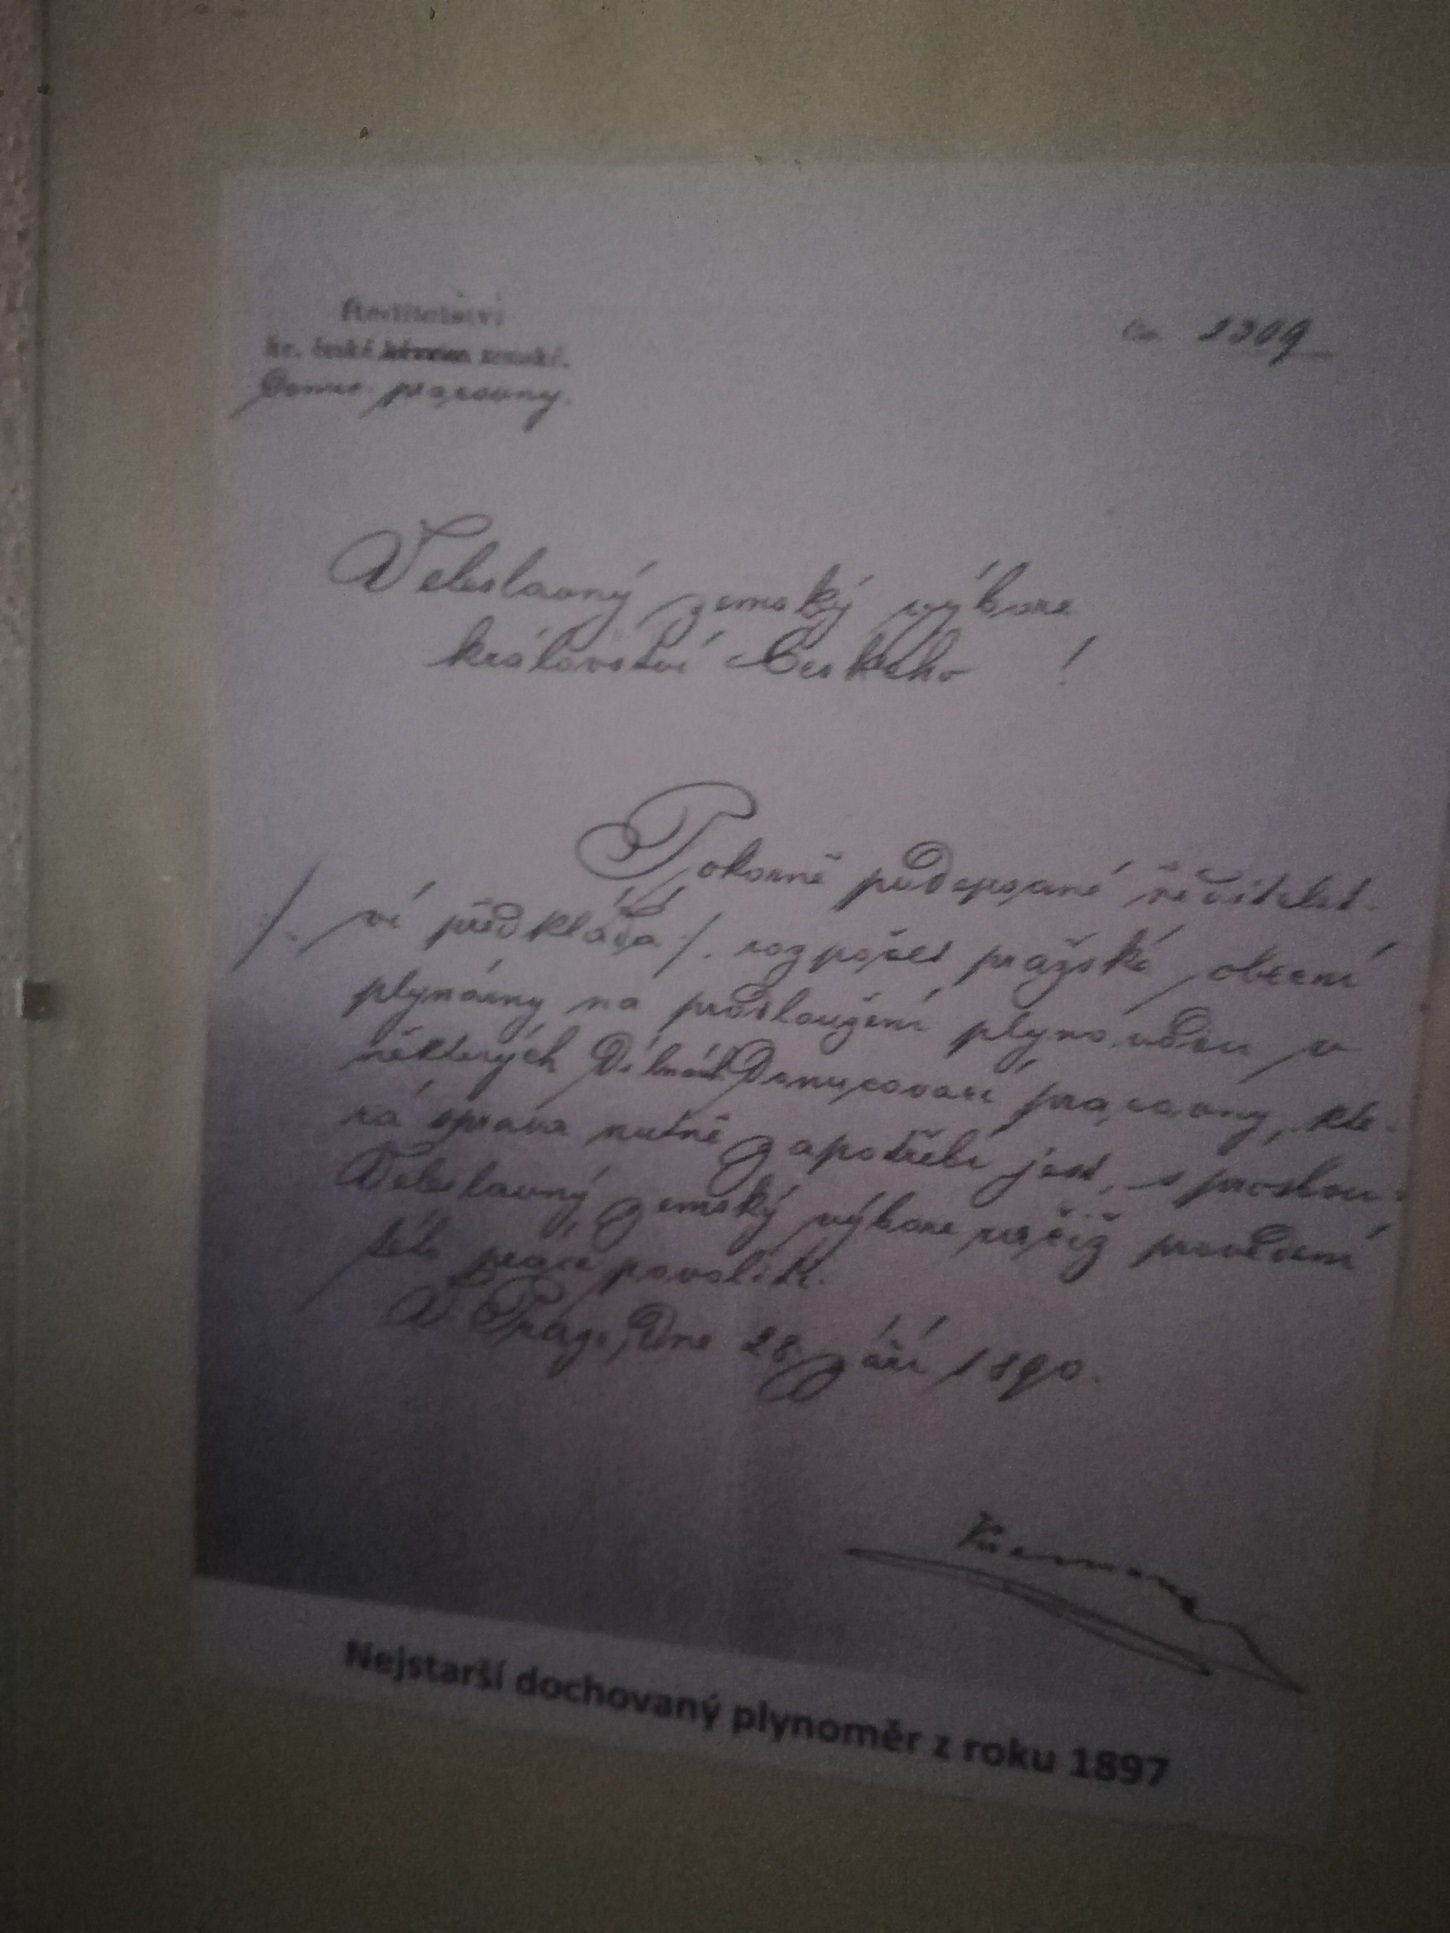 Ředitelství
kr. české zemské.
Donuc. pracovny.
Čís. 2309
Veleslavný zemský výbore
království Českého !
Pokorně podepsané ředitelst-
ví předkládá /. rozpočet pražské obecní
plynárny na prodloužení plynovodu v
některých dílnách donucovací pracovny, kte-
rá oprava nutně zapotřebí jest, s prosbou:
Veleslavný zemský výbore račiž provedení
této práce povoliti.
V Praze, dne 28. září 1890.
Nejstarší dochovaný plynoměr z roku 1897